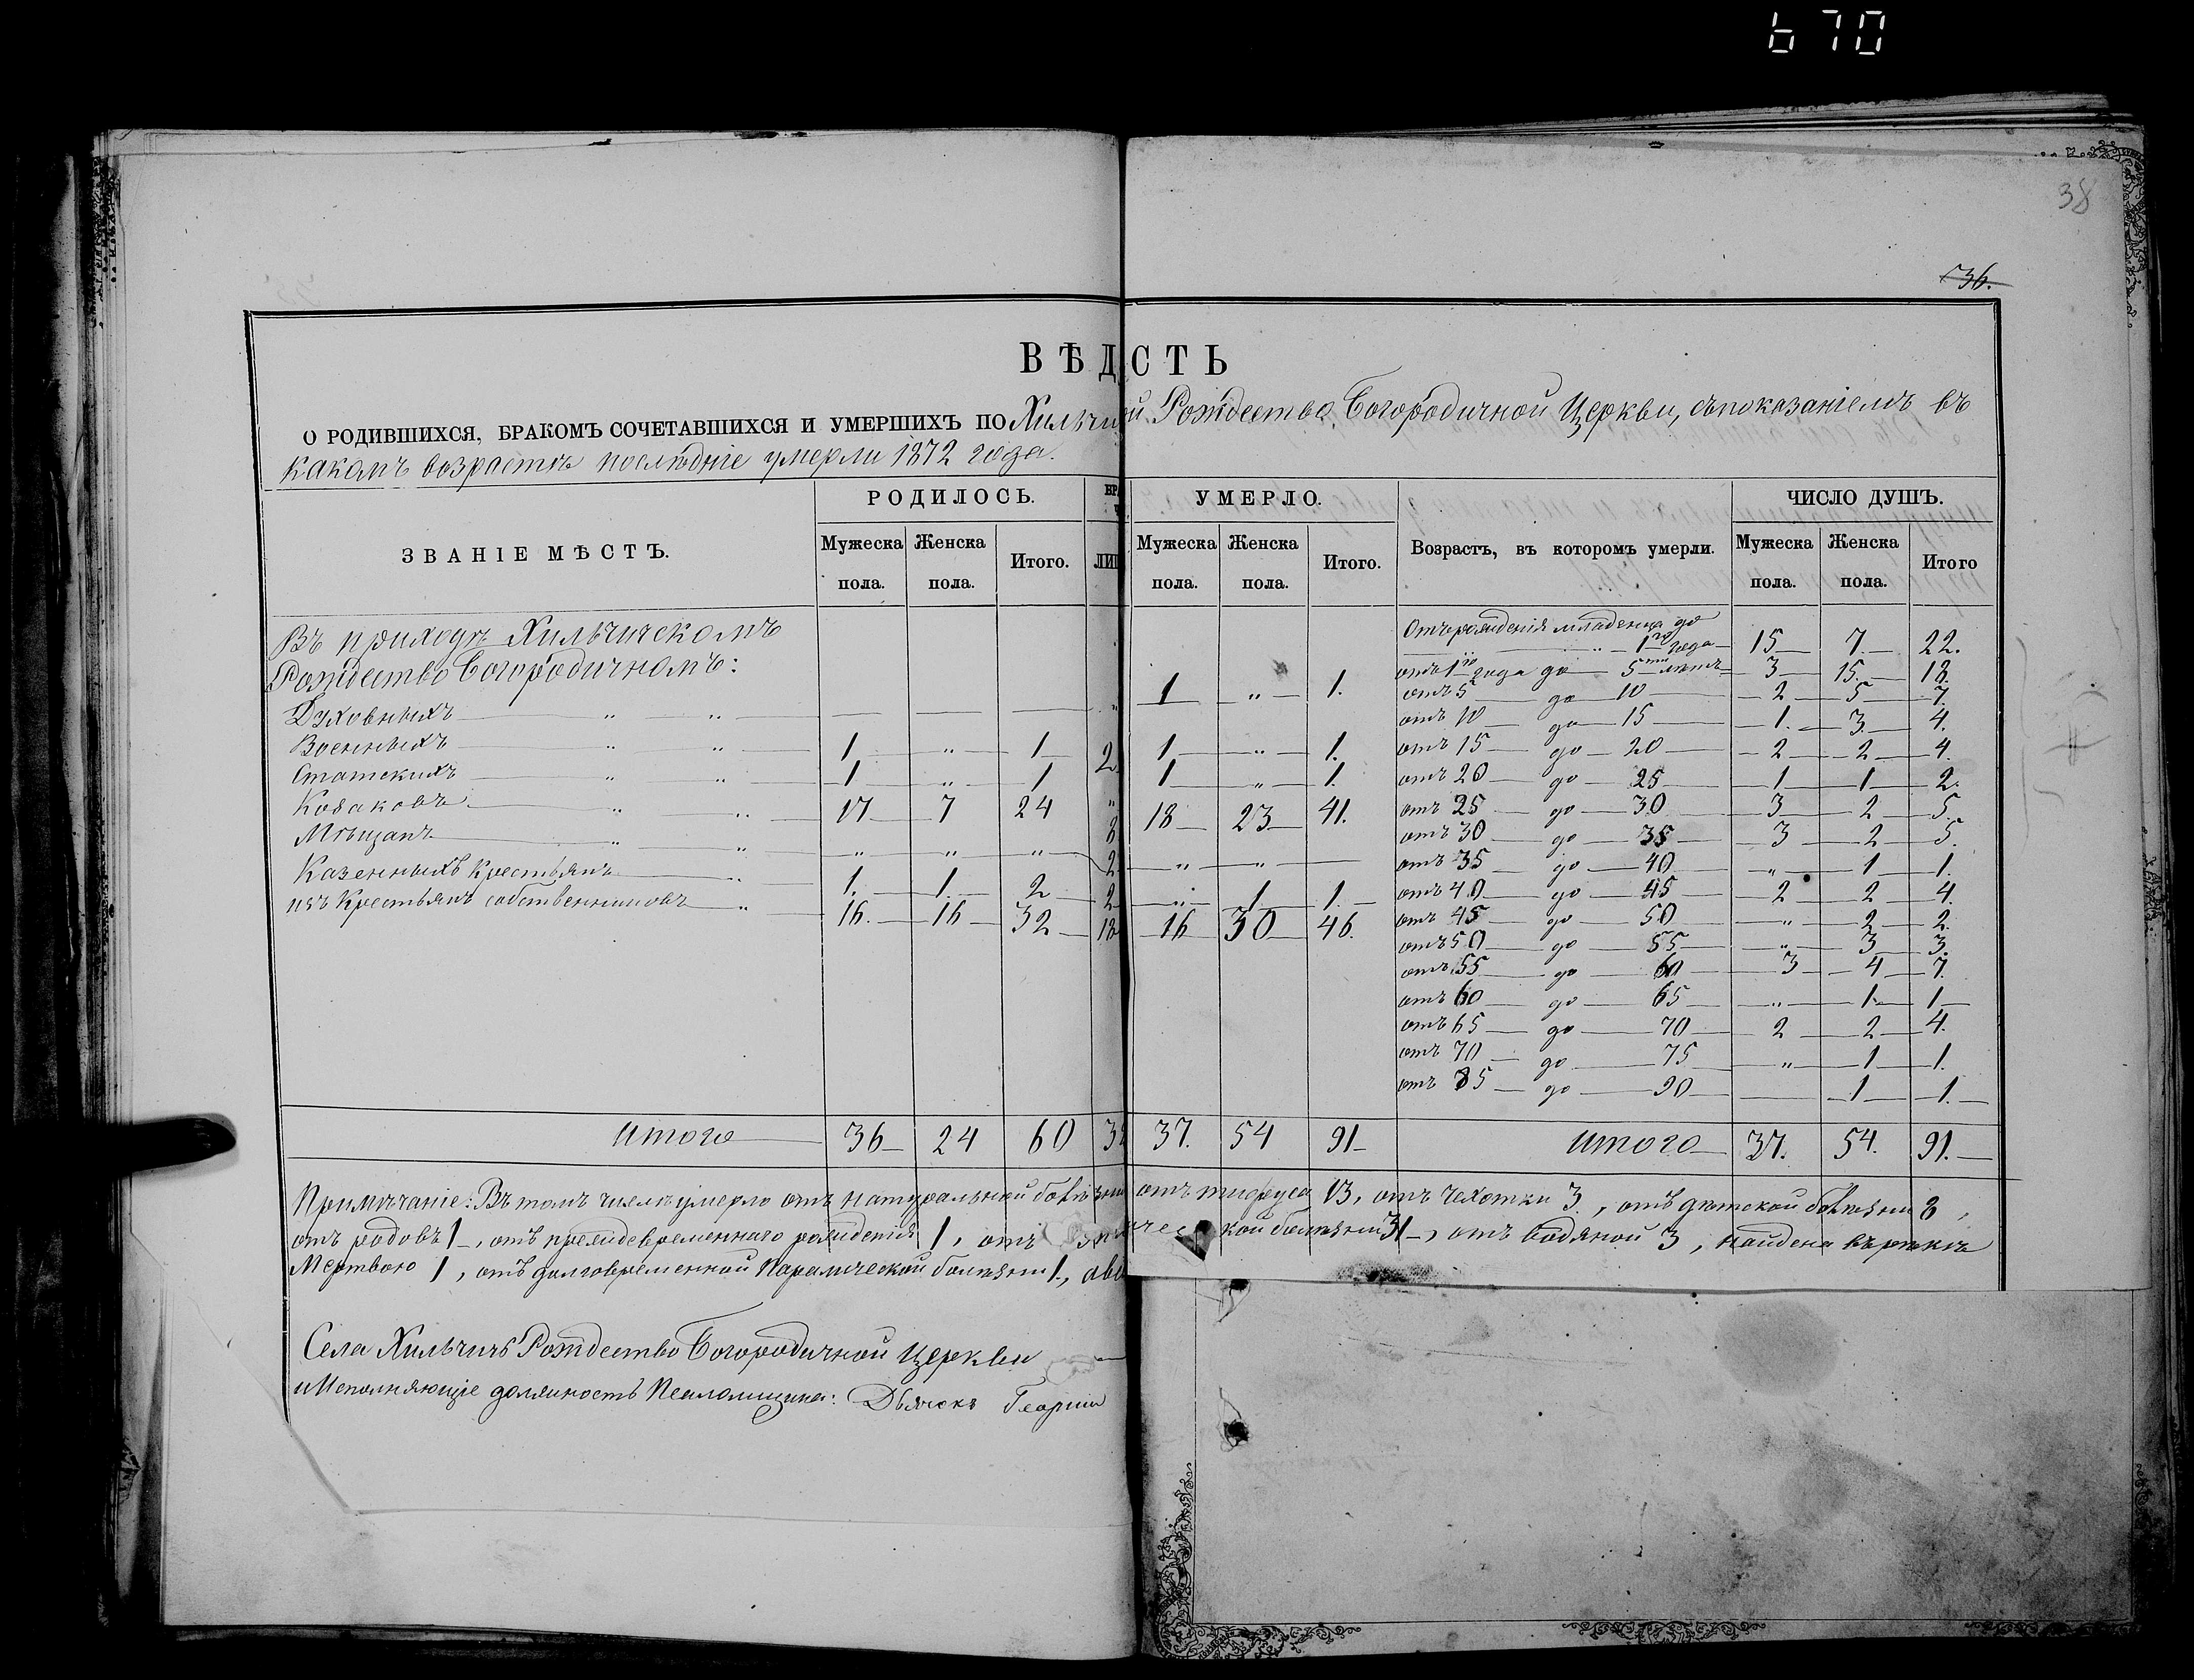 670
38
36.
ВѢД СТЬ
О РОДИВШИХСЯ, БРАКОМЪ СОЧЕТАВШИХСЯ И УМЕРШИХЪ ПО Хильчи й Рождество Богородичной Церкви, съ показаніемъ въ
какомъ возрастѣ послѣдніе умерли 1872 года.
ЗВАНІЕ МѢСТЪ. РОДИЛОСЬ. УМЕРЛО. Возрастъ, въ которомъ умерли. ЧИСЛО ДУШЪ.
Мужеска пола. Женска пола. Итого. Мужеска пола. Женска пола. Итого. Мужеска пола. Женска пола. Итого
Въ приходѣ Хильчическомъ
Рождество Богородичномъ:
Духовныхъ — „ „ — — — „ 1 „ 1.
Военныхъ — „ „ 1 „ 1 2 1 „ 1.
Статскихъ — „ „ 1 „ 1 „ 1 „ 1.
Козаковъ — „ „ 17 7 24 8 18 23 41.
Мѣщанъ — „ „ „ „ „ 2 „ „ —
Казенныхъ Крестьянъ „ 1. 1. 2 2 „ 1 1.
изъ Крестьянъ собственниковъ „ 16. 16 32 18 16 30 46.
Отъ рожденія младенца до
1го года 15 7 22.
отъ 1го года до 5ти лѣтъ 3 15. 18.
отъ 5 до 10 2 5 7.
отъ 10 до 15 1. 3. 4.
отъ 15 до 20 2 2 4.
отъ 20 до 25 1 1 2.
отъ 25 до 30 3 2 5.
отъ 30 до 35 3 2 5.
отъ 35 до 40 „ 1 1.
отъ 40 до 45 2 2 4.
отъ 45 до 50 „ 2 2.
отъ 50 до 55 „ 3 3.
отъ 55 до 60 3 4 7.
отъ 60 до 65 „ 1 1
отъ 65 до 70 2 2 4.
отъ 70 до 75 „ 1 1.
отъ 85 до 90 — 1 1.
Итого 36 24 60 37. 54 91 Итого 37. 54. 91.
Примѣчаніе: Въ томъ числѣ умерло отъ натуральной болѣзни отъ тифуса 13, отъ чехотки 3, отъ дѣтской болѣзни 8,
отъ родовъ 1, отъ преждевременнаго рожденія 1, отъ кой болѣзни 31, отъ водяной 3, найдена въ рѣкѣ
Мертвою 1, отъ долговременной Паралической болѣзни 1.,
Села Хильчичъ Рождество Богородичной Церкви
и Исполняющіе должность Псаломщика: Дьячокъ Георгій